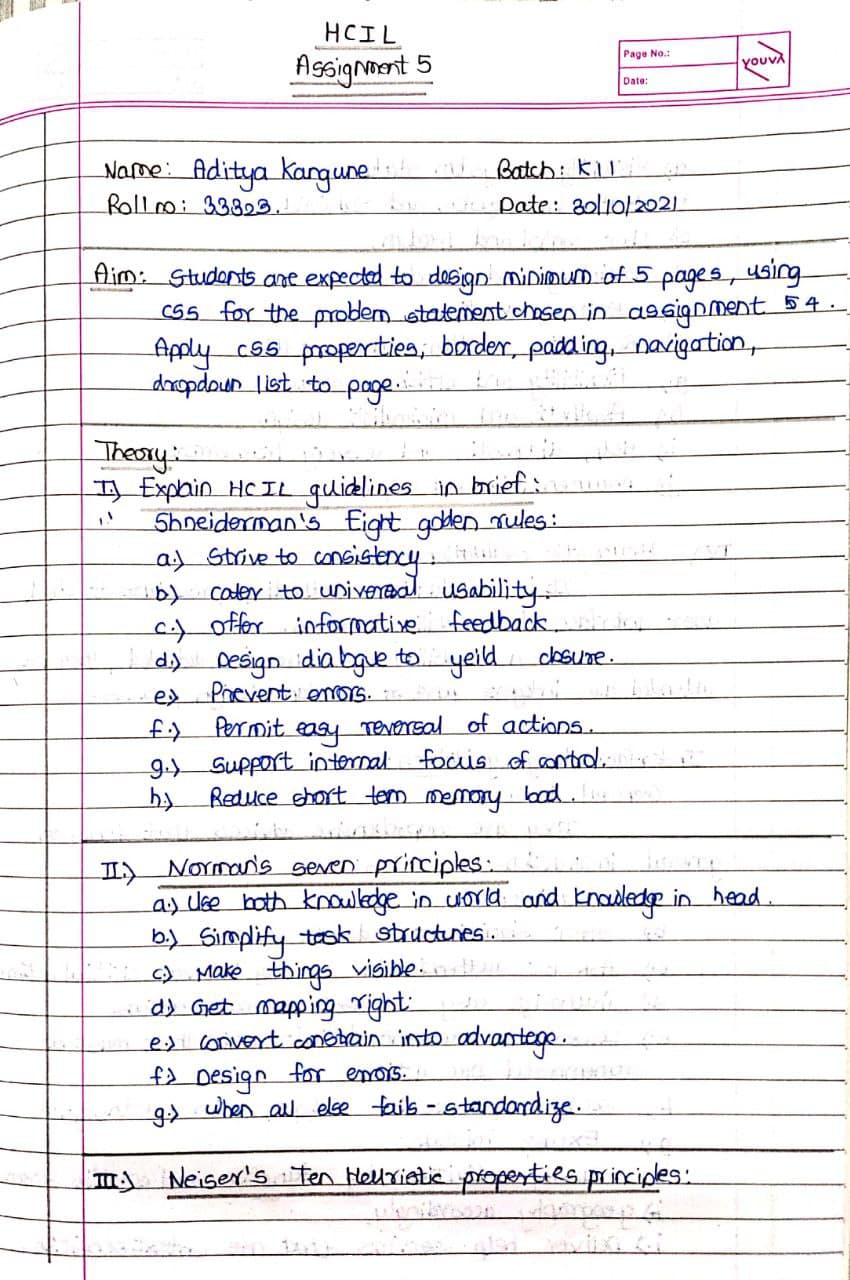 HCIL
Assignment 5
Page No.:
Date:
YOUVA
Name: Aditya Kangune Batch: K11
Roll no: 33323. Date: 30/10/2021
Aim: Students are expected to design minimum of 5 pages, using
css for the problem statement chosen in assignment 4.
Apply css properties, border, padding, navigation,
dropdown list to page.
Theory:
I.) Explain HCIL guidelines in brief:
Shneiderman's Eight golden rules:
a.) Strive to consistency.
b.) cater to universal usability.
c.) offer informative feedback.
d.) Design dialogue to yeild closure.
e.) Prevent errors.
f.) Permit easy reversal of actions.
g.) Support internal focus of control.
h.) Reduce short term memory load.
II.) Norman's seven principles:
a.) Use both knowledge in world and knowledge in head.
b.) Simplify task structures.
c.) Make things visible.
d.) Get mapping right.
e.) Convert constrain into advantege.
f.) Design for errors.
g.) When all else fails - standardize.
III.) Neiser's Ten Heuristic properties principles: